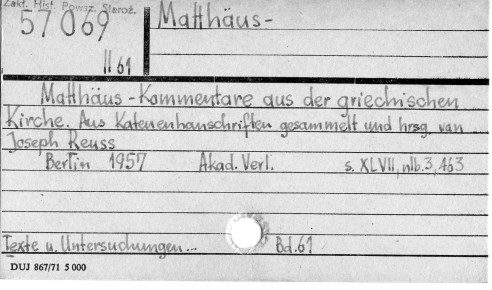 Zakł. Hist. Powsz. Staroż.
57 069
II 61
Matthäus-
Matthäus-Kommentare aus der griechischen
Kirche. Aus Katenenhanschriften gesammelt und hrsg. van
Joseph Reuss
Berlin 1957 Akad. Verl. s. XLVII, nlb. 3, 463
Texte u. Untersuchungen... Bd. 61
DUJ 867/71 5 000